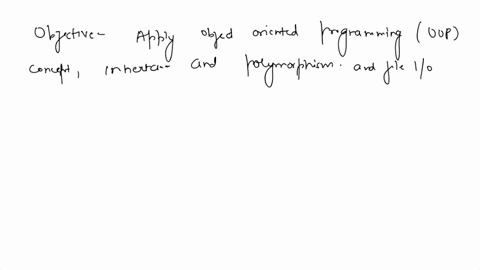 Objective- Apply object oriented programming (OOP)
concept, inherta- and polymorphism. and file I/O